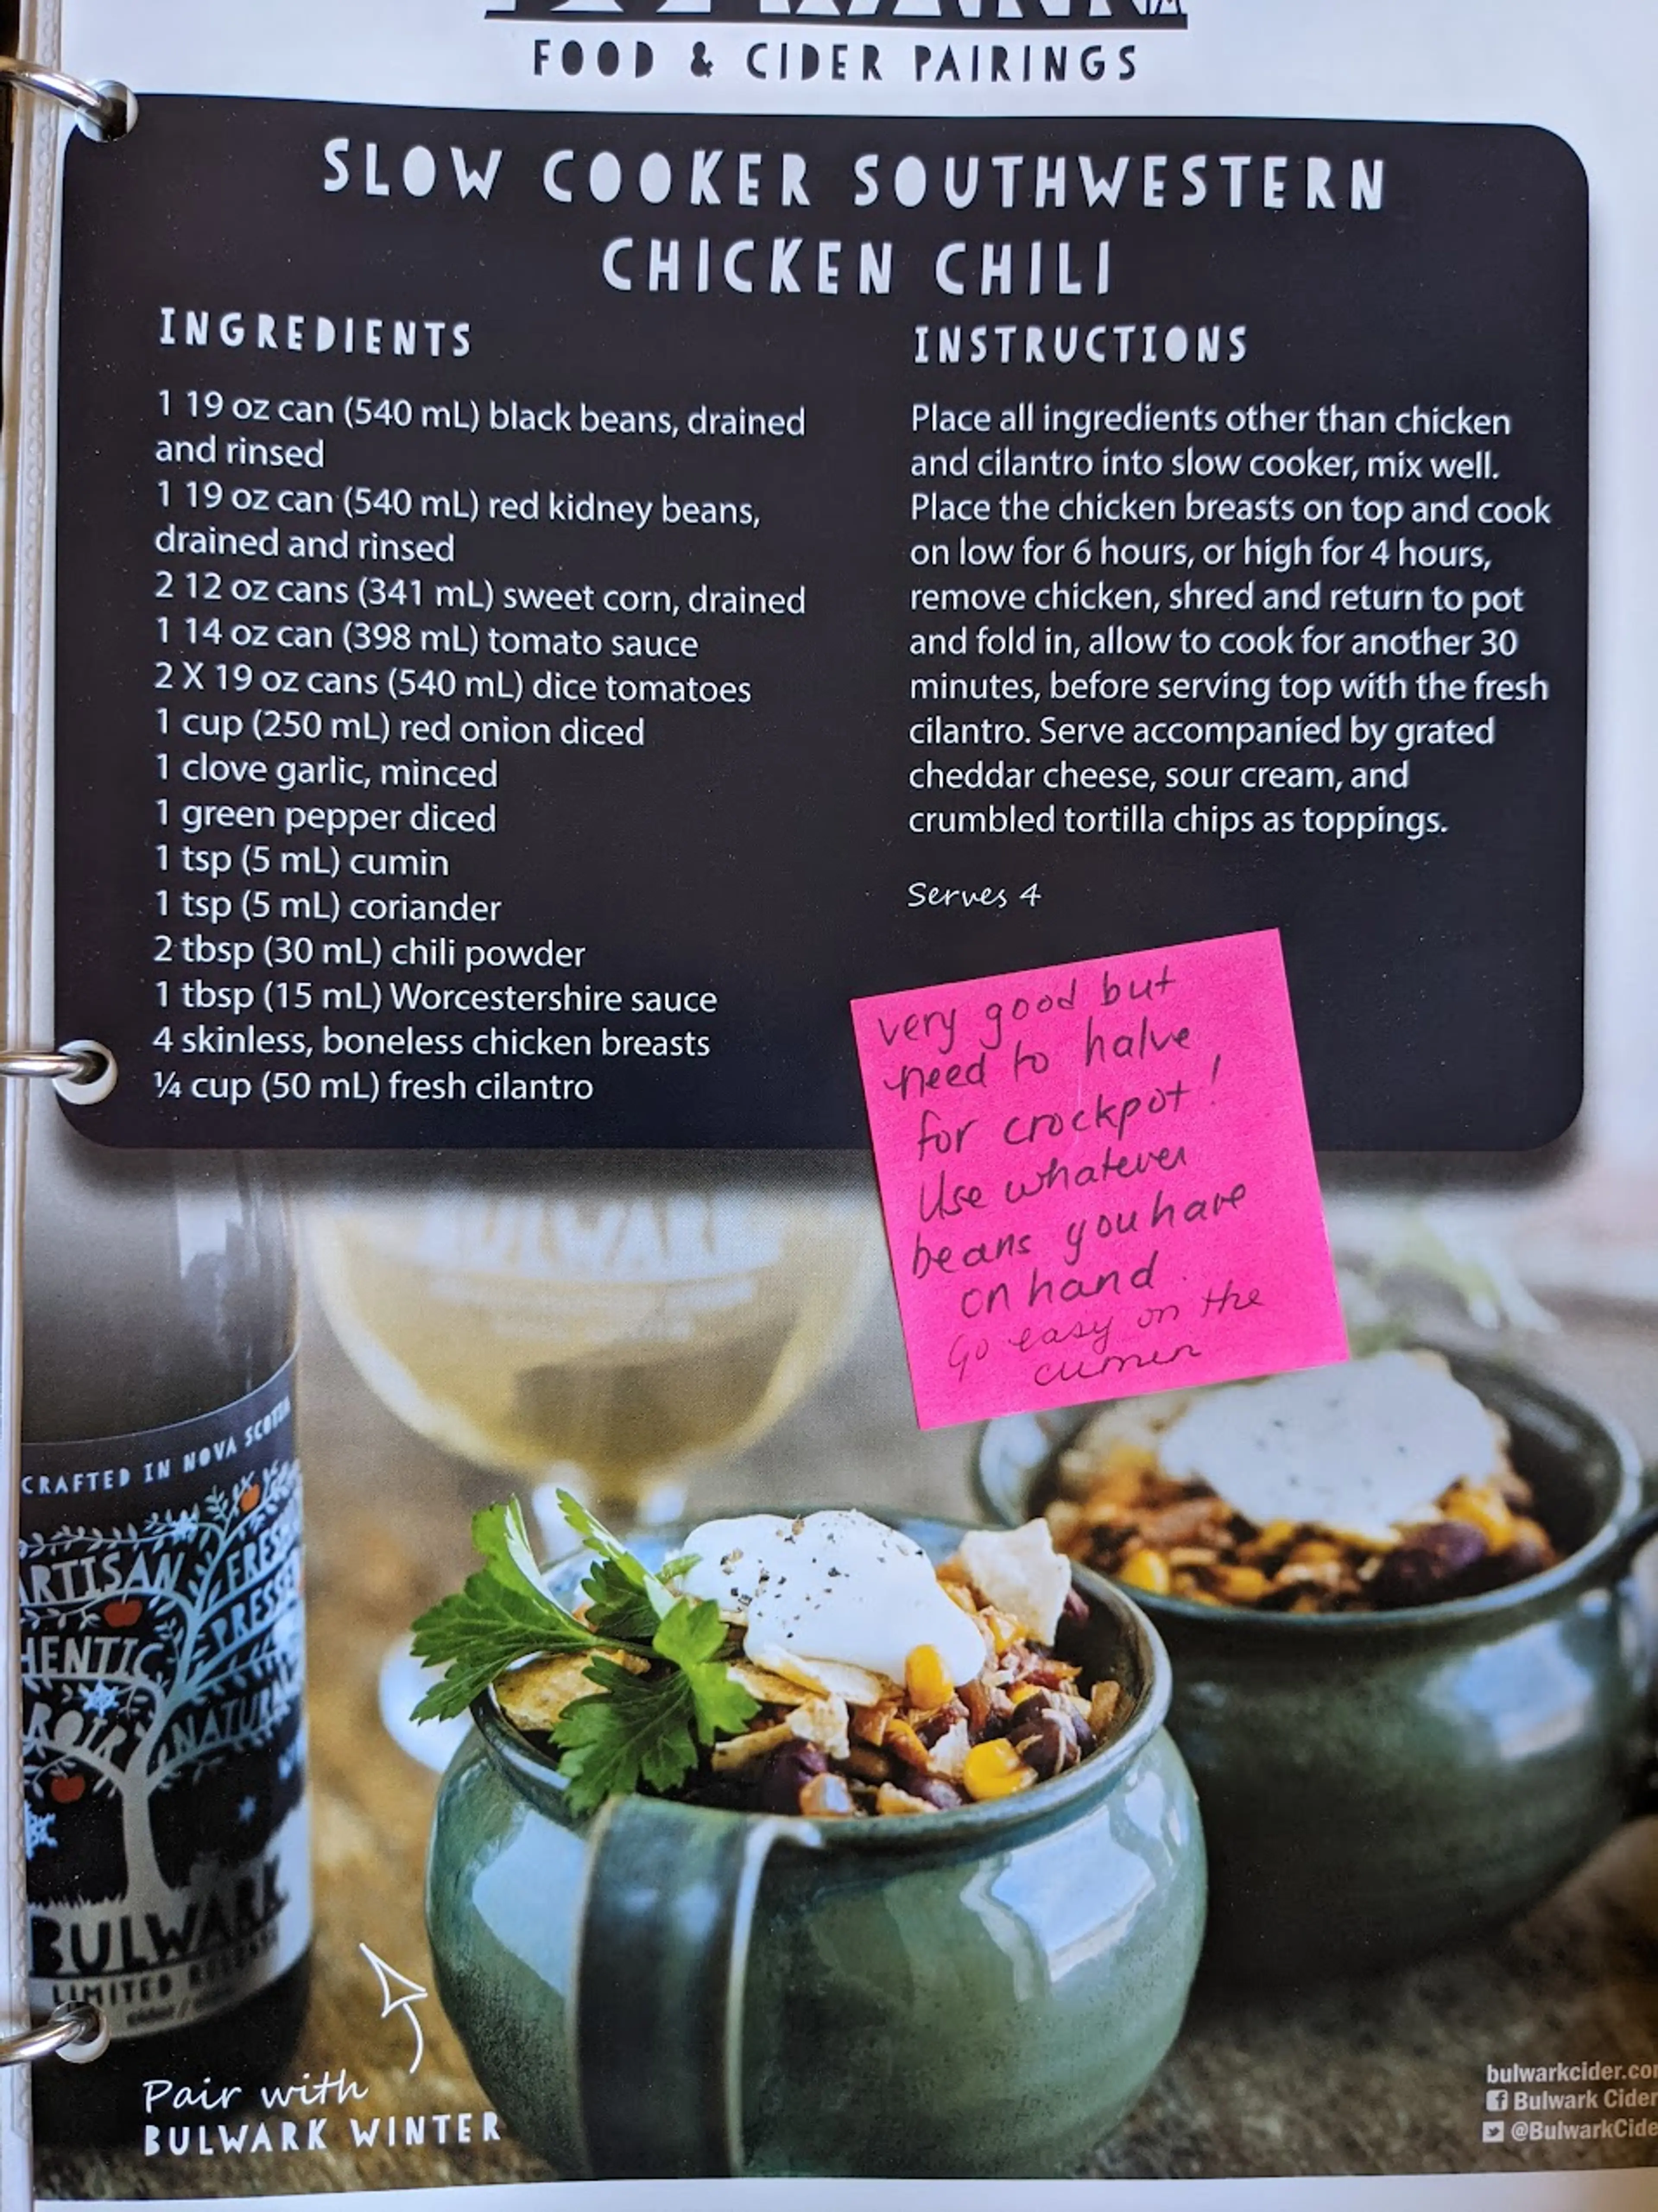 FOOD & CIDER PAIRINGS
SLOW COOKER SOUTHWESTERN
CHICKEN CHILI
INGREDIENTS
1 19 oz can (540 mL) black beans, drained
and rinsed
1 19 oz can (540 mL) red kidney beans,
drained and rinsed
2 12 oz cans (341 mL) sweet corn, drained
1 14 oz can (398 mL) tomato sauce
2 X 19 oz cans (540 mL) dice tomatoes
1 cup (250 mL) red onion diced
1 clove garlic, minced
1 green pepper diced
1 tsp (5 mL) cumin
1 tsp (5 mL) coriander
2 tbsp (30 mL) chili powder
1 tbsp (15 mL) Worcestershire sauce
4 skinless, boneless chicken breasts
¼ cup (50 mL) fresh cilantro
INSTRUCTIONS
Place all ingredients other than chicken
and cilantro into slow cooker, mix well.
Place the chicken breasts on top and cook
on low for 6 hours, or high for 4 hours,
remove chicken, shred and return to pot
and fold in, allow to cook for another 30
minutes, before serving top with the fresh
cilantro. Serve accompanied by grated
cheddar cheese, sour cream, and
crumbled tortilla chips as toppings.
Serves 4
very good but
need to halve
for crockpot!
Use whatever
beans you have
on hand.
Go easy on the
cumin
BULWARK
CRAFTED IN NOVA SCOTIA
ARTISAN
FRESH
PRESSED
NATURAL
BULWARK
LIMITED RELEASE
Pair with
BULWARK WINTER
bulwarkcider.co
Bulwark Cider
@BulwarkCide